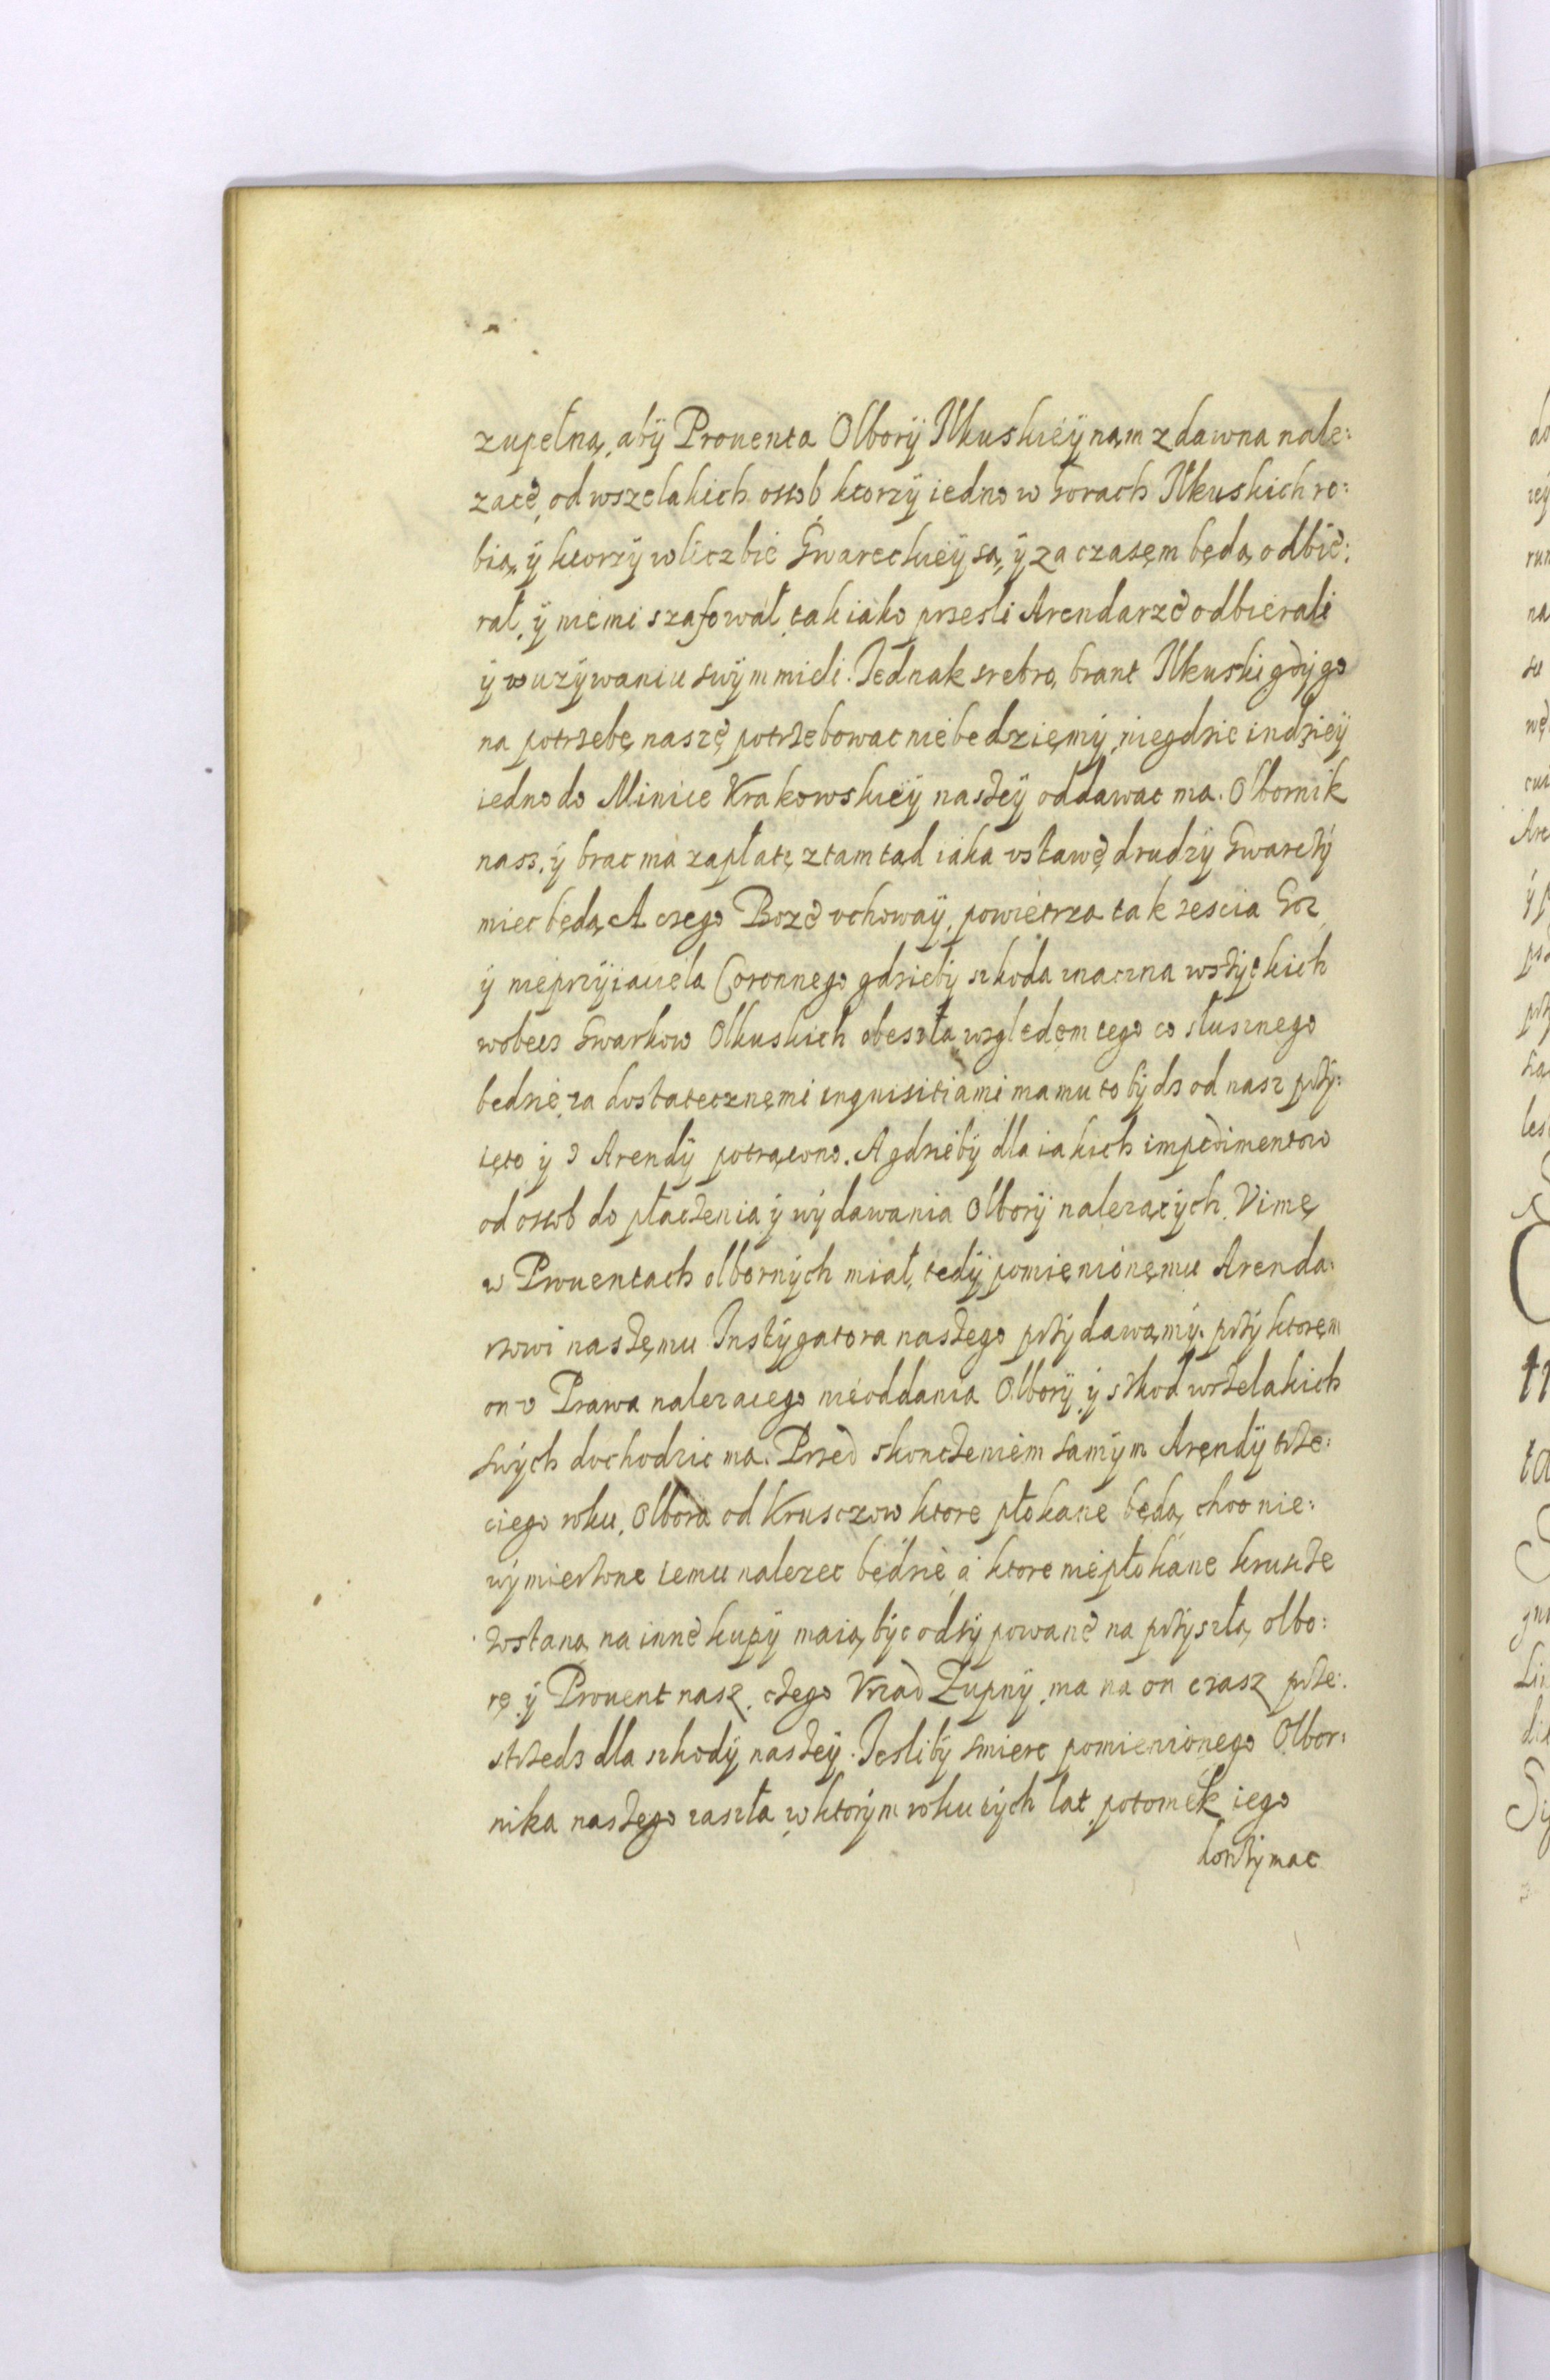 zupełną, aby Prouenta Olbory Ilkuskiey nam zdawna nale:
zące, od wszelakich osob, ktorzy iedno w Gorach Ilkuskich ro:
bią, y ktorzy w liczbie Gwareckiey są, y za czasem będą, odbie:
rał, y niemi szafował, tak iako przesli Arendarze odbierali
y w uzywaniu swym mieli. Jednak srebro, brant Ilkuski gdy go
na potrzebę naszę potrzebowac niebedziemy, niegdzie indziey
iedno do Minice Krakowskiey naszey oddawac ma. Olbornik
nasz, y brac ma zapłatę ztamtąd iaka vstawę drudzy Gwarczy
miec będą. A czego Boze vchoway, powietrza tak zescia Gor,
y nieprzyiaciela Coronnego gdzieby szkoda znaczna wszyckich
wobecz Gwarkow Olkuskich obeszła, względem tego co słusznego
będzie, za dostatecznemi inquisitiami ma mu to bydz od nasz przy:
ięto y z Arendy potrącono. A gdzieby dla iakich impedimentow
od osob do płaczenia y wydawania Olbory nalezących, Vimę
w Prouentach olbornych miał, tedy pomienionemu Arenda:
rzowi naszemu Instygatora naszego przydawamy. przy ktorem
on v Prawa nalezacego nieoddania Olbory, y szkod wszelakich
swych dochodzic ma. Przed skonczeniem samym Arendy trze:
ciego roku, Olbora od Krusczow ktore płokane będą, choc nie:
wymierzone iemu nalezec będzie, a ktore niepłokane krusze
zostaną, na inne kupy maią byc odsypowane na przyszłą olbo:
rę, y Prouent nasz, czego Vrzad Zupny, ma na on czasz prze:
strzedz dla szkody naszey. Jesliby smierc pomienionego Olbor:
nika naszego zaszła w ktorym roku tych lat, potomek iego
dotrzymac